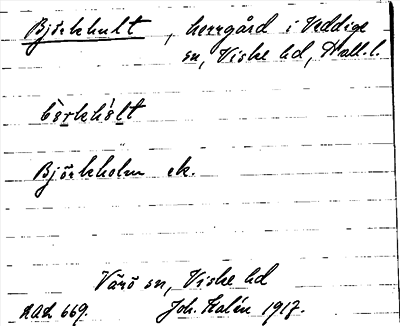 Björkhult, herrgård i Veddige
sn, Viske hd, Hall. l.
bö̀rkhúlt
Björkholm ek.
Värö sn, Viske hd
AAL 669. Joh. Kalén 1917.